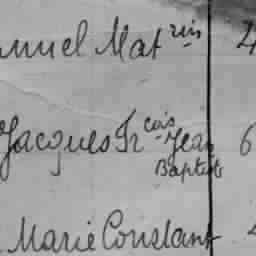 nuel Mat rin 2
Jacques Fr cois Jean 6
Baptiste
Marie Constant